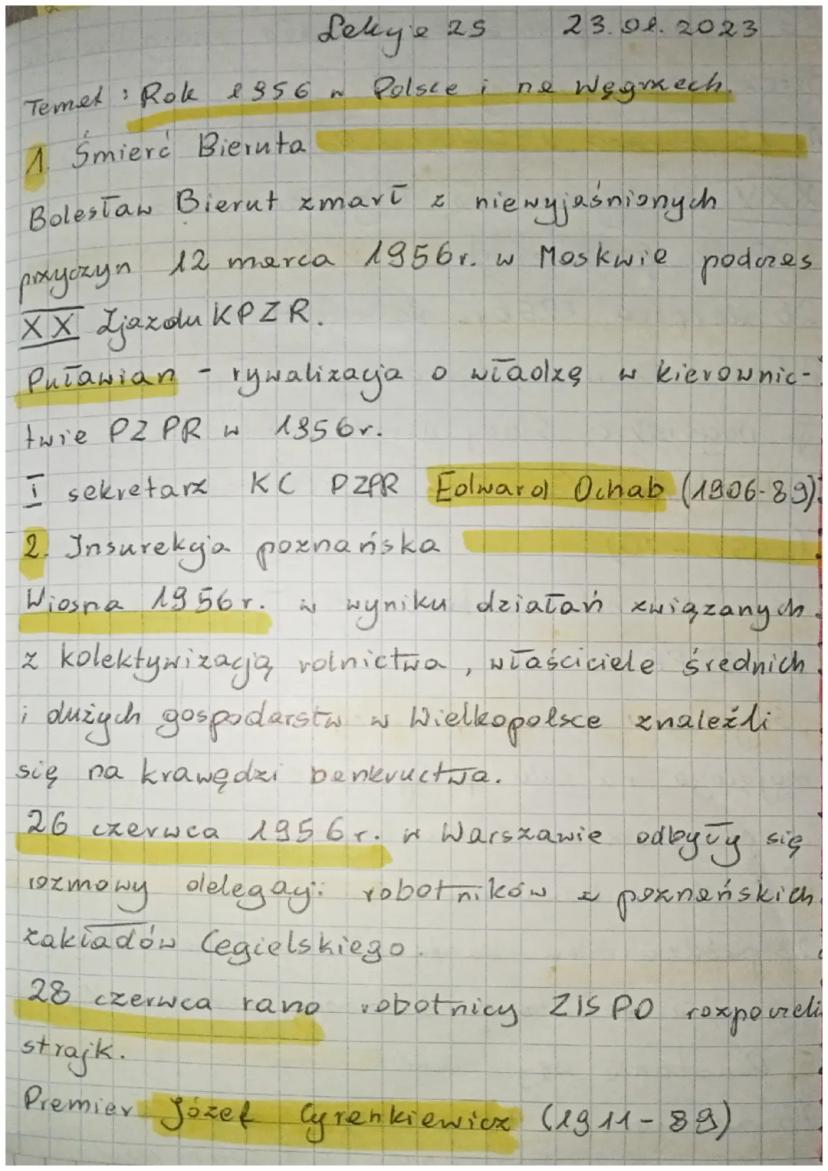 Lekcja 25 23.01.2023
Temat: Rok 1956 w Polsce i na Węgrzech.
1. Śmierć Bieruta
Bolesław Bierut zmarł z niewyjaśnionych
przyczyn 12 marca 1956r. w Moskwie podczas
XX Zjazdu KPZR.
Puławian - rywalizacja o władzę w kierownic-
twie PZPR w 1956r.
I sekretarz KC PZPR Edward Ochab (1906-89).
2. Insurekcja poznańska
Wiosna 1956r. w wyniku działań związanych
z kolektywizacją rolnictwa, właściciele średnich
i dużych gospodarstw w Wielkopolsce znaleźli
się na krawędzi bankructwa.
26 czerwca 1956r. w Warszawie odbyły się
rozmowy delegacji robotników z poznańskich
zakładów Cegielskiego.
28 czerwca rano robotnicy ZISPO rozpoczęli
strajk.
Premier Józef Cyrankiewicz (1911-89)